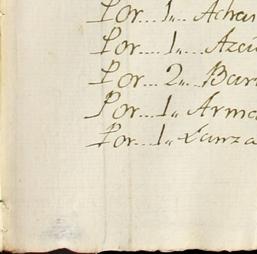 Por... 1.. Achas
Por.... 1... Azai
Por... 2.. Bar
Por.... 1.. Arma
Por... 1.. Lanza